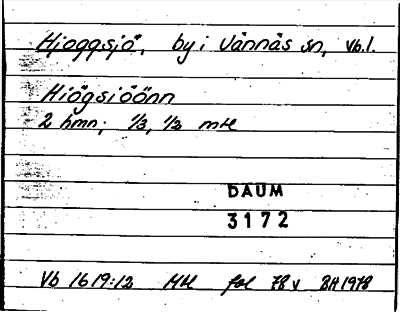 Hjoggsjö, by i Vännäs sn, Vb.l.
Hiögsiöönn
2 hmn; 1/3, 1/3 mtl
DAUM
3172
Vb 1619:12 Mtl fol 78 v BH 1978